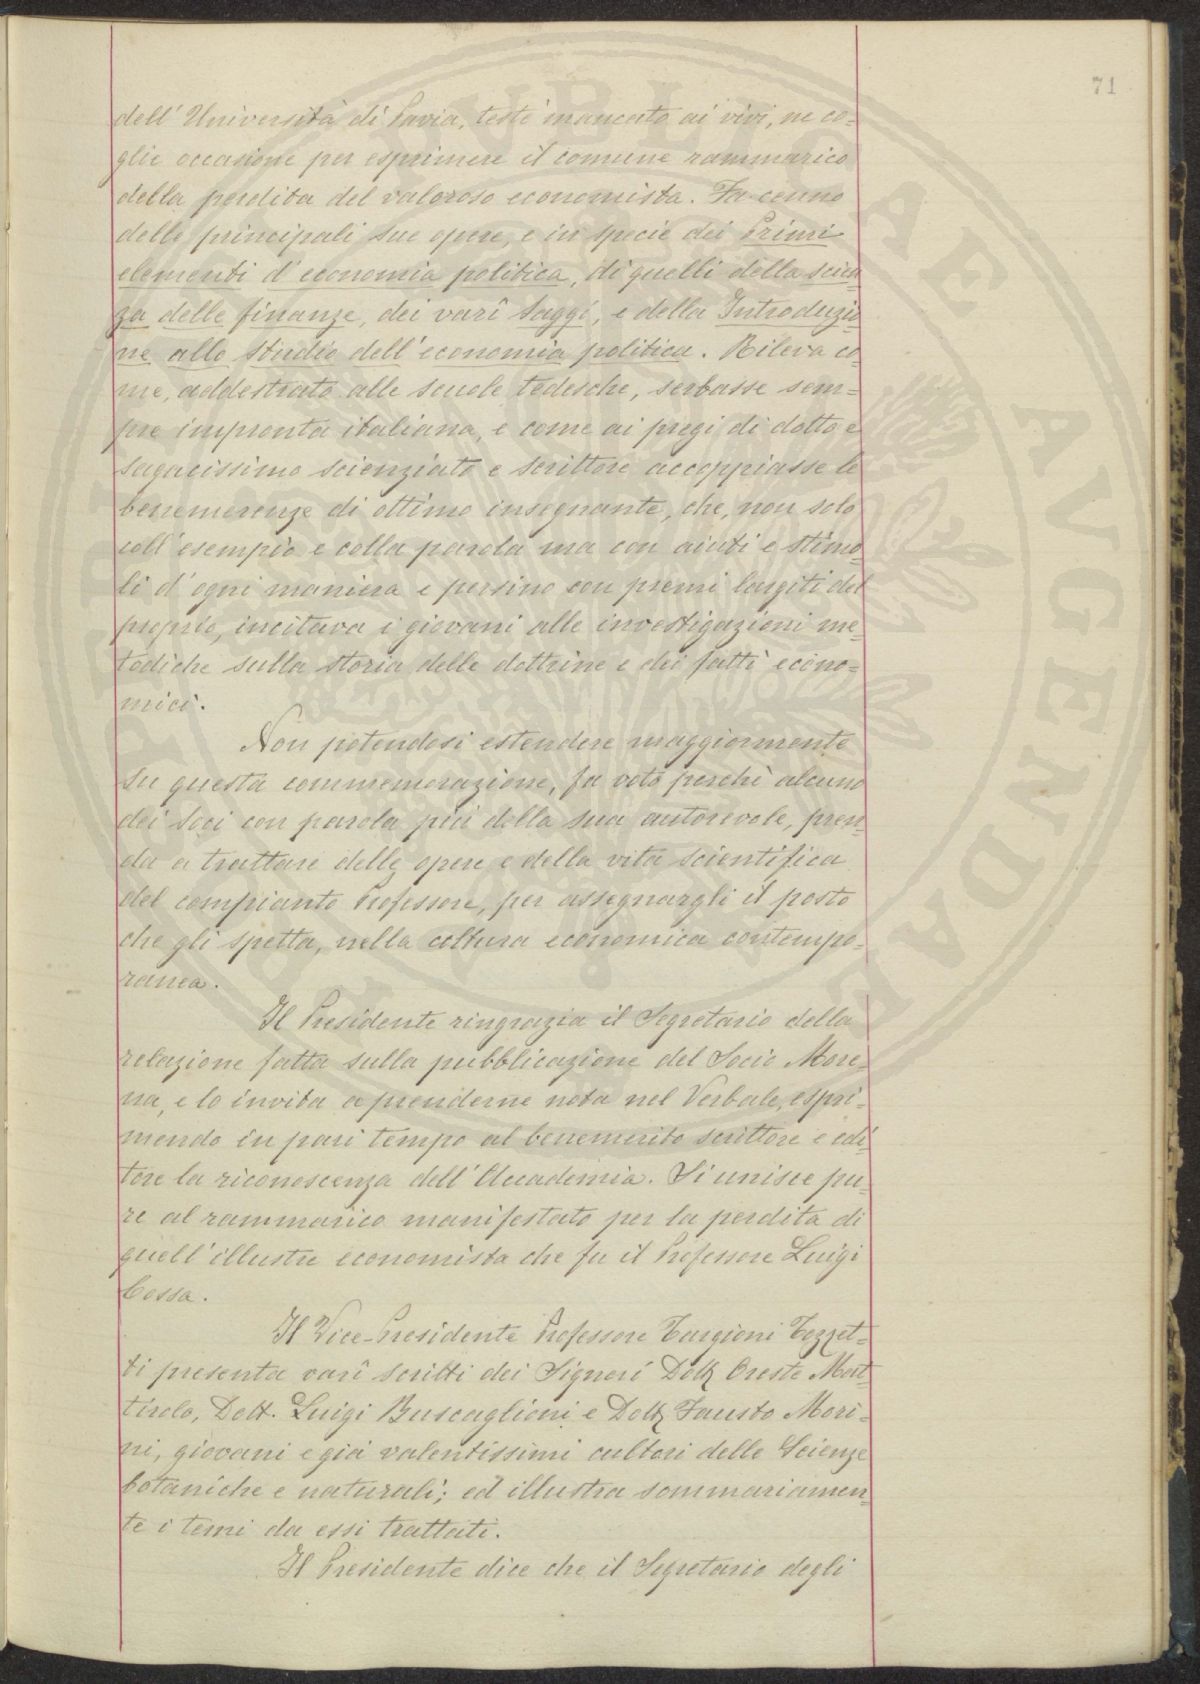 71
dell' Università di Pavia, testè mancato ai vivi, ne co=
glie occasione per esprimere il comune rammarico
della perdita del valoroso economista. Fa cenno
delle principali sue opere, e in specie dei Primi
elementi d'economia politica, di quelli della scien=
za delle finanze, dei varî Saggi, e della Introduzio=
ne allo studio dell'economia politica. Rileva co=
me, addestrato alle scuole tedesche, serbasse sem=
pre impronta italiana, e come ai pregi di dotto e
sagacissimo scienziato e scrittore accoppiasse le
benemerenze di ottimo insegnante, che, non solo
coll'esempio e colla parola ma con aiuti e stimo=
li d'ogni maniera e persino con premi largiti del
proprio, incitava i giovani alle investigazioni me=
todiche sulla storia delle dottrine e dei fatti econo=
mici.
Non potendosi estendere maggiormente
su questa commemorazione, fa voto perchè alcuno
dei Soci con parola più della sua autorevole, pren=
da a trattare delle opere e della vita scientifica
del compianto Professore, per assegnargli il posto
che gli spetta, nella coltura economica contempo=
ranea.
Il Presidente ringrazia il Segretario della
relazione fatta sulla pubblicazione del Socio More=
na, e lo invita a prenderne nota nel Verbale, espri=
mendo in pari tempo al benemerito scrittore e edi=
tore la riconoscenza dell'Accademia. Si unisce pu=
re al rammarico manifestato per la perdita di
quell'illustre economista che fu il Professore Luigi
Cossa.
Il Vice-Presidente Professore Targioni Tozzet=
ti presenta varî scritti dei Signori Dott. Oreste Mat=
tirolo, Dott. Luigi Buscaglioni e Dott. Fausto Mori=
ni, giovani e già valentissimi cultori delle Scienze
botaniche e naturali; ed illustra sommariamen=
te i temi da essi trattati.
Il Presidente dice che il Segretario degli